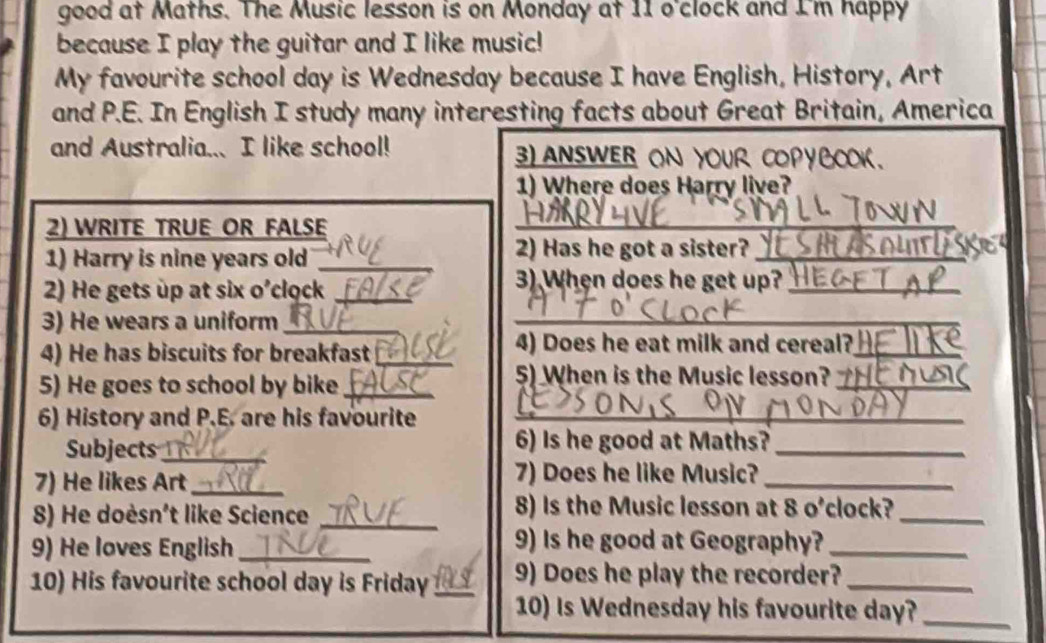 good at Maths. The Music lesson is on Monday at 11 o'clock and I'm happy
because I play the guitar and I like music!
My favourite school day is Wednesday because I have English, History, Art
and P.E. In English I study many interesting facts about Great Britain, America
and Australia... I like school!
2) WRITE TRUE OR FALSE
1) Harry is nine years old TRUE
2) He gets ùp at six o'clock FALSE
3) He wears a uniform RUE
4) He has biscuits for breakfast FALSE
5) He goes to school by bike FALSE
6) History and P.E. are his favourite
Subjects TRUE
7) He likes Art TRUE
8) He doèsn't like Science TRUE
9) He loves English TRUE
10) His favourite school day is Friday
3) ANSWER ON YOUR COPYBOOK.
1) Where does Harry live?
HARRY LIVE SMALL TOWN
2) Has he got a sister? YES
3) When does he get up? HE GET AP
AT 7 O'CLOCK
4) Does he eat milk and cereal? HE like
5) When is the Music lesson? THE MUSIC
LESSON IS ON MONDAY
6) Is he good at Maths?
7) Does he like Music?
8) Is the Music lesson at 8 o'clock?
9) Is he good at Geography?
9) Does he play the recorder?
10) Is Wednesday his favourite day?